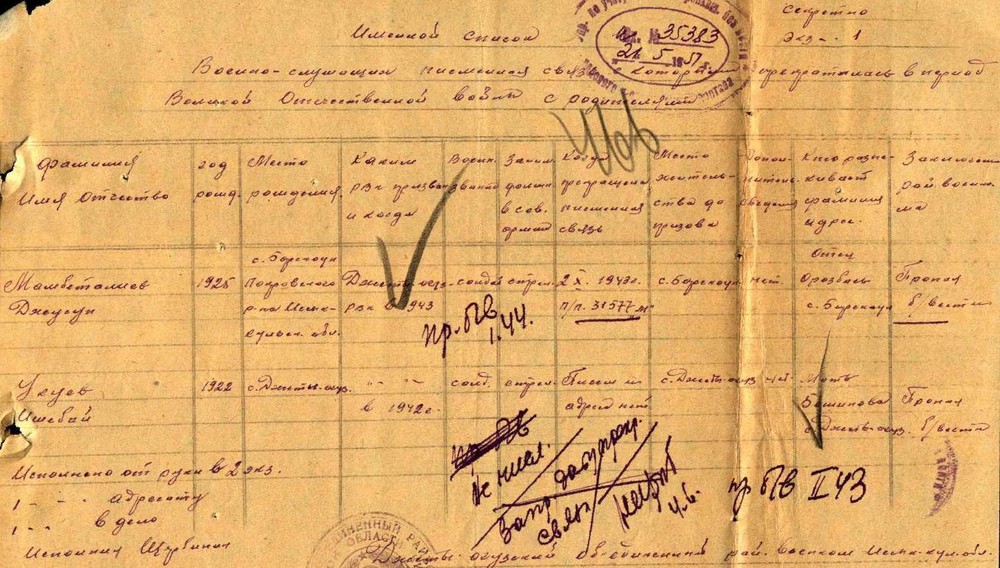 Секретно
Экз-. 1
Именной список
№ 35383
21. 5. 1951
Военно-служащих писменная связь с которыми прекратилась в период
Великой Отечественной войны с родителями
Фамилия Имя Отчество
год рожд.
Место рождения
Каким РВК призван и когда
Воен. звание
Заним. должн. в сов. армии
Когда прекращена писменная связь
Место жительства до призыва
Дополнительн. сведения
Кто разыскивает фамилия адрес.
Заключение рай. военкома
Мамбеталиев
1925
с. Барскаун Покровского р-на Иссык-кульск. обл.
РВК в 1943
солд
стрел.
2 X. 1943г. п/п. 31577 м
с. Барскаун
нет.
Отец Орозбай с. Барскаун
Пропал б/вести
пр. б/в I. 44.
1922
с. Джеты-огуз.
-"- -"- в 1942г.
солд.
стрел.
Писем и адреса нет
с. Джеты-огуз
нет
Мать
с. Джеты-огуз.
Пропал б/вести
Не числ.
связи
пр б/в II 43
Исполнено от руки в 2 экз.
1 - - адресату
1 - - в дело
Исполнил Щербинин
Джеты-огузский объединенный рай. военком Иссык-кул. обл.